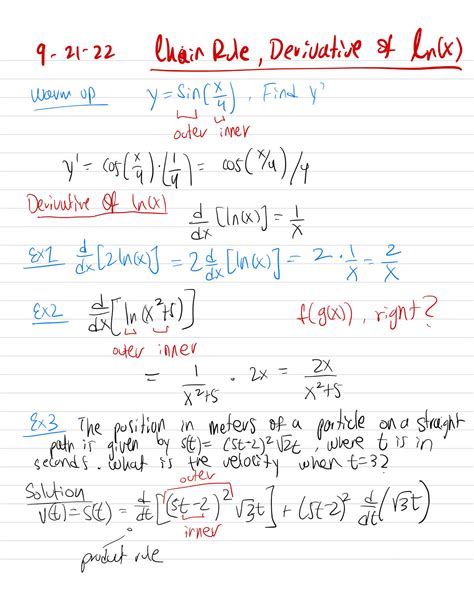 9-21-22 Chain Rule, Derivative of ln(x)
Warm up y = Sin(x/4), Find y'
outer inner
y' = cos(x/4)·(1/4) = cos(x/4)/4
Derivative of ln(x)
d/dx [ln(x)] = 1/x
Ex1 d/dx [2 ln(x)] = 2 d/dx [ln(x)] = 2 · 1/x = 2/x
Ex2 d/dx [ln(x²+5)] f(g(x)), right?
outer inner
= 1/x²+5 · 2x = 2x/x²+5
Ex3 The position in meters of a particle on a straight
path is given by s(t) = (5t-2)² √2t, where t is in
seconds. What is the velocity when t=3?
outer
Solution
v(t) = s(t) = d/dt [(5t-2)² √3t] + (5t-2)² d/dt (√3t)
inner
product rule